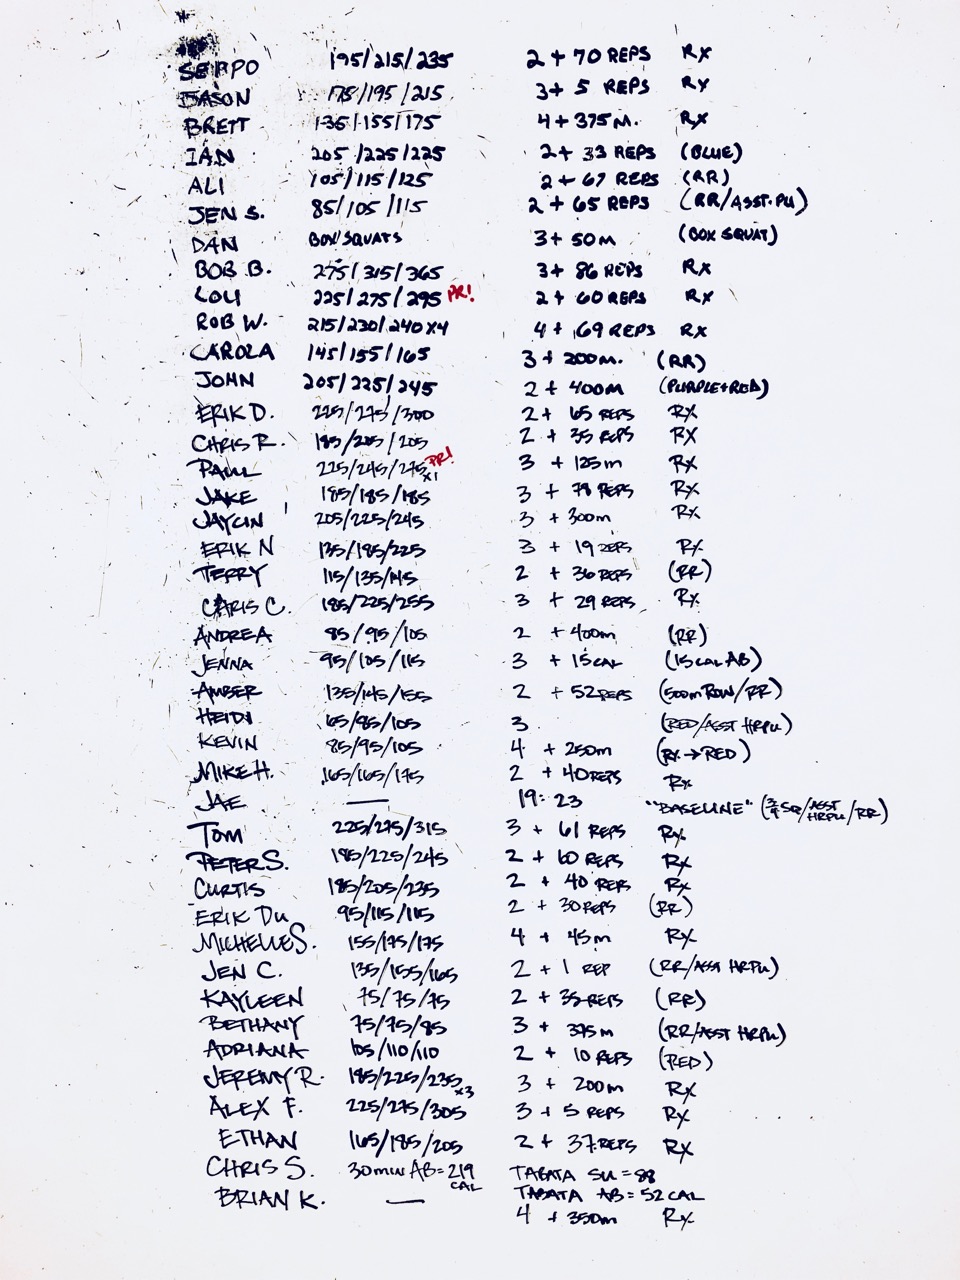 SEPPO 195/215/235 2 + 70 REPS Rx
JASON 175/195/215 3 + 5 REPS Rx
BRETT 135/155/175 4 + 375 M. Rx
IAN 205/225/225 2 + 33 REPS (BLUE)
ALI 105/115/125 2 + 67 REPS (RR)
JEN S. 85/105/115 2 + 65 REPS (RR/ASST. PU)
DAN BOX SQUATS 3 + 50 M (BOX SQUAT)
BOB B. 275/315/365 3 + 86 REPS Rx
LOU 225/275/295 PR! 2 + 60 REPS Rx
ROB W. 215/230/240 x4 4 + 69 REPS Rx
CAROLA 145/155/165 3 + 200 M. (RR)
JOHN 205/225/245 2 + 400 M (PURPLE+RED)
ERIK D. 225/275/300 2 + 65 REPS RX
CHRIS R. 185/205/205 2 + 35 REPS RX
PAUL 225/245/275 x1 PR! 3 + 125 m RX
JAKE 185/185/185 3 + 78 REPS Rx
JAYCIN 205/225/245 3 + 300m Rx
ERIK N 135/185/225 3 + 19 REPS Rx
TERRY 115/135/145 2 + 36 REPS (RR)
CHRIS C. 185/225/255 3 + 29 REPS Rx
ANDREA 85/95/105 2 + 400m (RR)
JENNA 95/105/115 3 + 15 CAL (15 CAL AB)
AMBER 135/145/155 2 + 52 REPS (500m ROW/RR)
HEIDI 65/85/105 3 (RED/ASST HRPU)
KEVIN 85/95/105 4 + 250m (Rx → RED)
MIKE H. 165/165/175 2 + 40 REPS Rx
JAE — 19:23 "BASELINE" (3/4 SQ/ASST HRPU/RR)
TOM 225/275/315 3 + 61 REPS Rx
PETER S. 185/225/245 2 + 60 REPS Rx
CURTIS 185/205/235 2 + 40 REPS Rx
ERIK DU 95/115/115 2 + 30 REPS (RR)
MICHELLE S. 155/175/175 4 + 45m RX
JEN C. 135/155/165 2 + 1 REP (RR/ASST HRPU)
KAYLEEN 75/75/75 2 + 35 REPS (RR)
BETHANY 75/75/85 3 + 375 m (RR/ASST HRPU)
ADRIANA 105/110/110 2 + 10 REPS (RED)
JEREMY R. 185/225/235 x3 3 + 200m Rx
ALEX F. 225/275/305 3 + 5 REPS Rx
ETHAN 165/185/205 2 + 37 REPS RX
CHRIS S. 30 MIN AB = 219 CAL TABATA SU = 88
TABATA AB = 52 CAL
BRIAN K. — 4 + 350m Rx